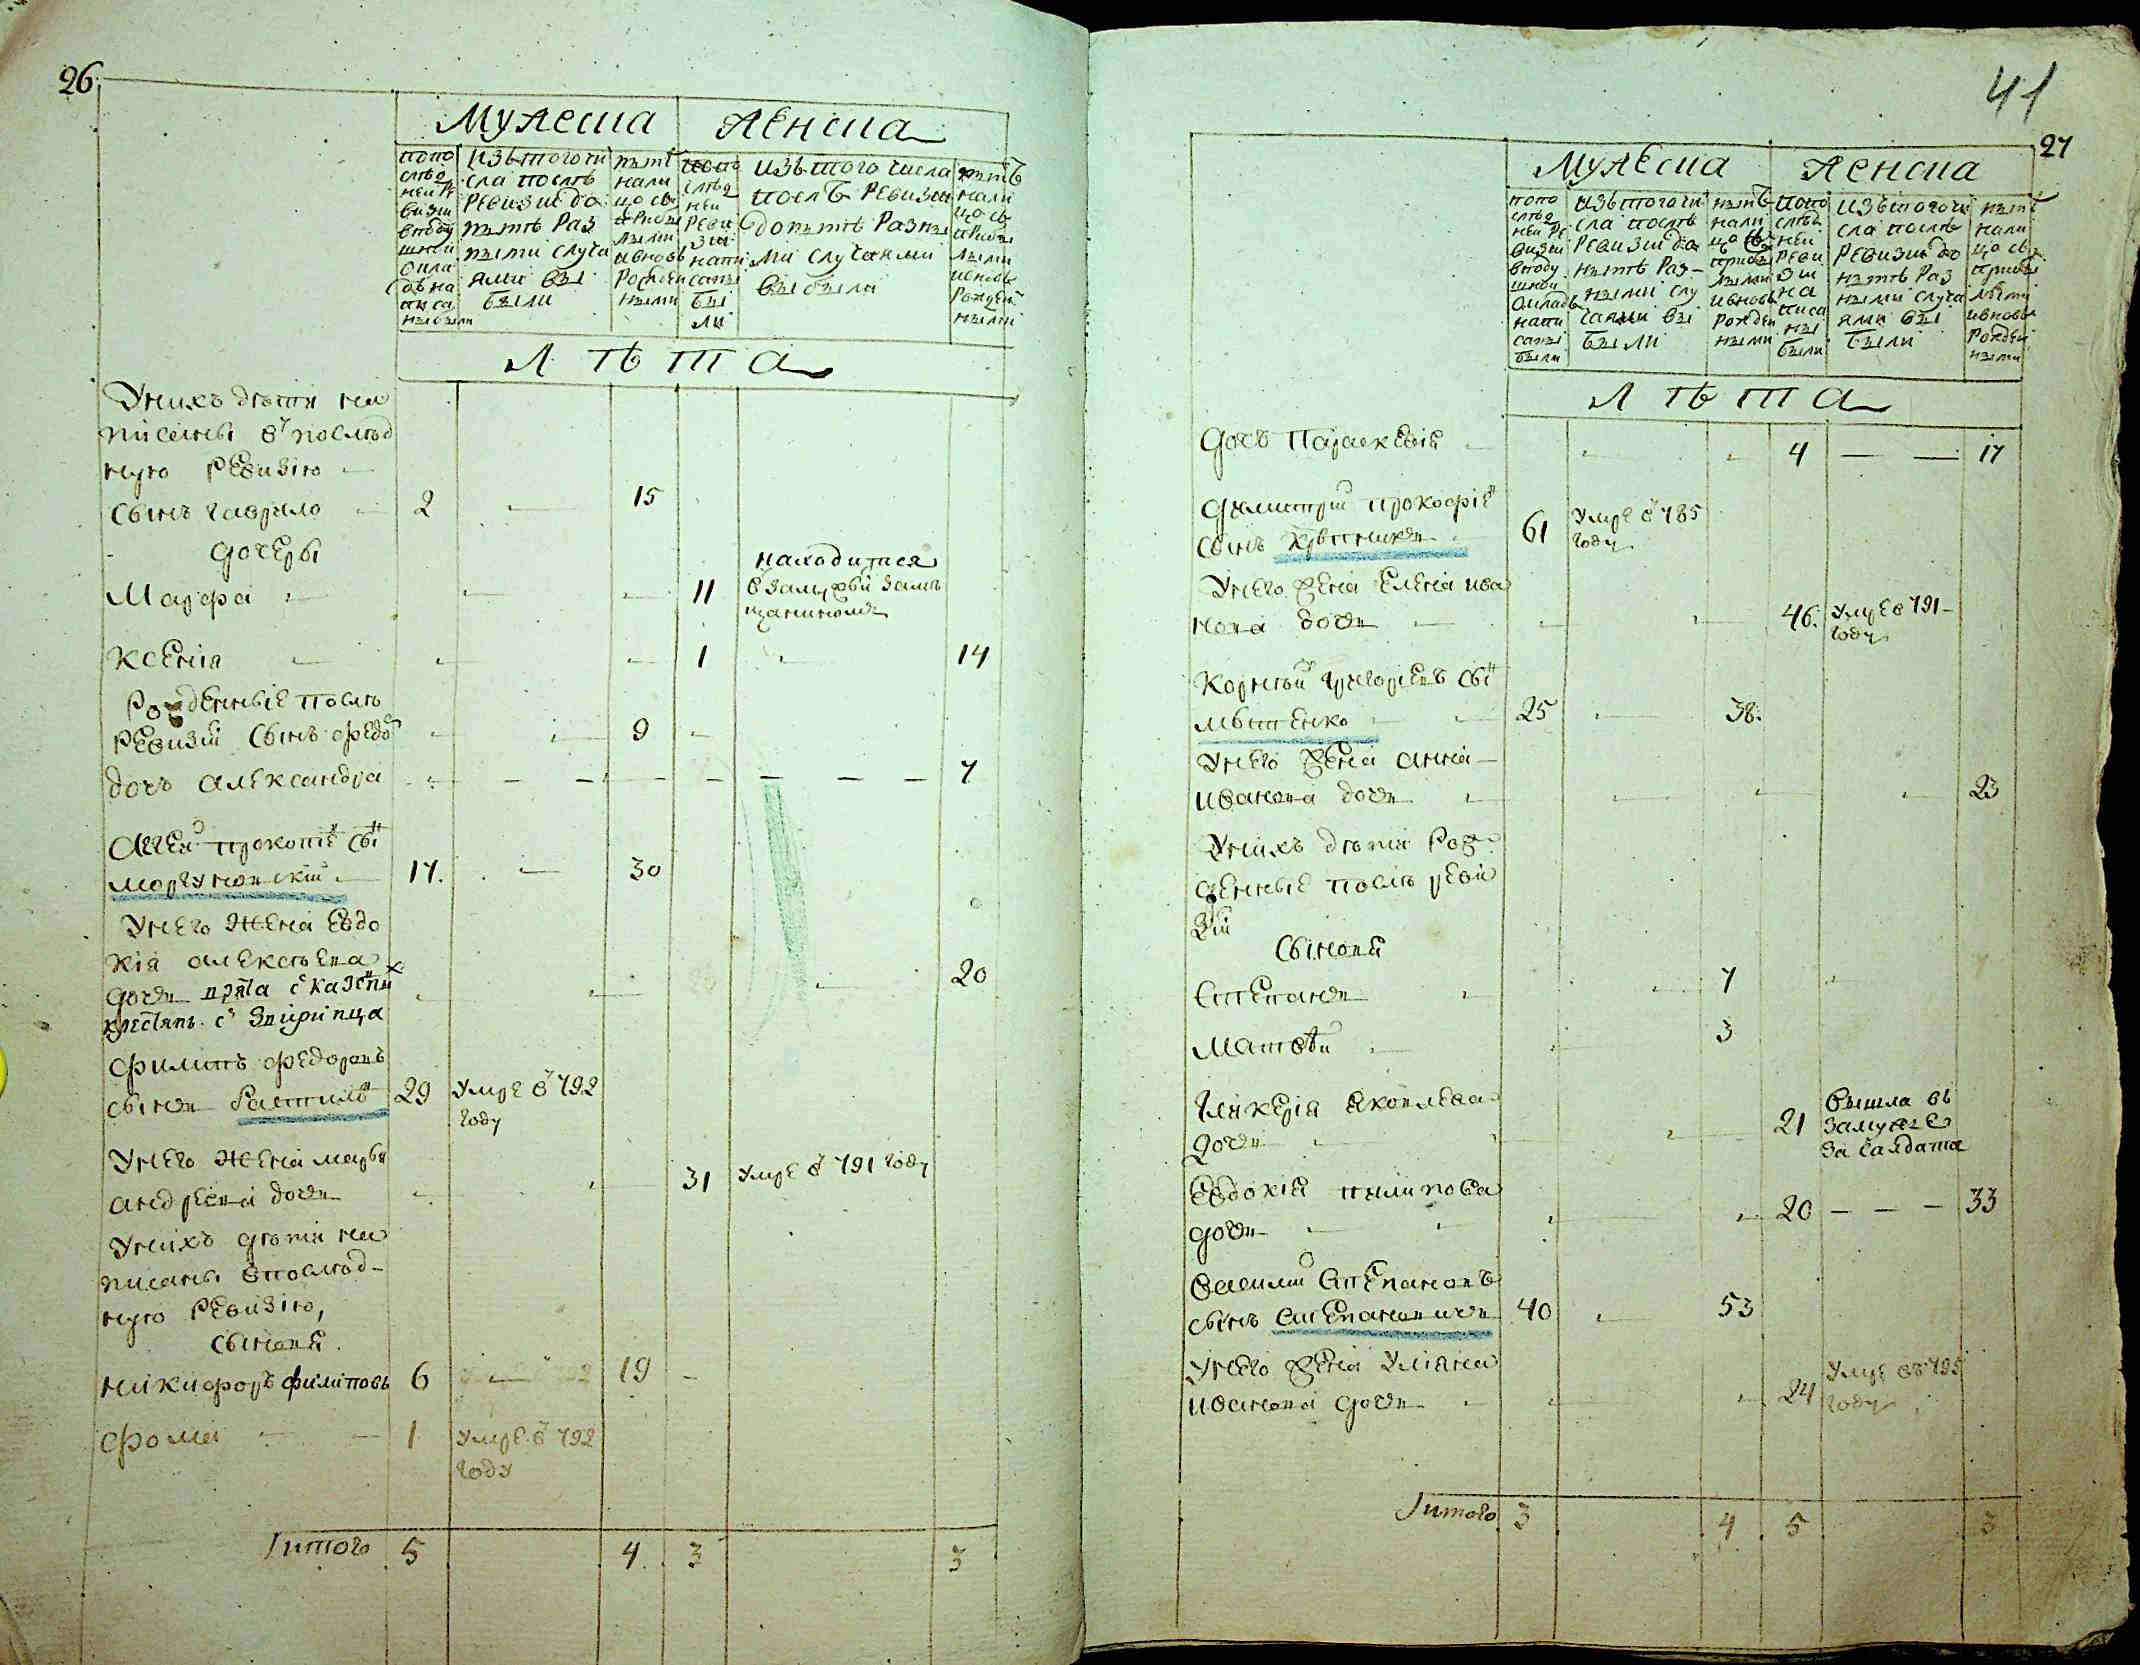 26
Мужеска Женска
попо следней ревизии в подушной оклад написаны были
изъ того числа после ревизии до ныне разными случаями выбыли
ныне налицо съ прибылыми и вновь рожденными
по последней ревизии написаны были
изъ того числа после ревизии до ныне разными случаями выбыли
ныне налицо съ прибылыми и вновь рожденными
Л ѣ т а
Унихъ дѣти на
писаны в последъ
нюю ревизию
Сынъ гаврило 2 15
дочеры
Марфа 11 находится
в замужви замъ
щанином
Ксения 1 14
Рожденные послѣ
ревизии Сынъ федо 9
дочь александра 7
прокопие сы
17. 30
Унего жена Евдо
кия алексѣева
дочь взята с казен
крестян. с 20
филипъ федоровъ
сынъ 29 Умре в 792
году
Унего жена марья
андреева дочь 31 Умре в 791 году
Унихъ дѣти на
писаны в послѣд-
нюю ревизию,
сыновя
никифоръ филиповъ 6 19
фома 1 Умре в 792
году
Итого 5 4. 3 3
41
27
Мужеска Женска
попо следней ревизии в подушной окладъ написаны были
изъ того числа после ревизии до ныне разными случаями выбыли
ныне налицо съ прибылыми и вновь рожденными
по последней ревизии написаны были
изъ того числа после ревизии до ныне разными случаями выбыли
ныне налицо съ прибылыми и вновь рожденными
Л ѣ т а
Дочь Параскевия 4 17
Димитрий прокофие
сынъ 61 Умре в 785
году
Унего жена Елена ива
нова дочь 46. Умре в 791
году
Корней григориевъ сы
25 38.
Унего жена анна
иванова дочь 23
Унихъ дѣти рож
денные послѣ реви
зии
Сыновя
Степанъ 7
Матвѣй 3
Гликерия яковлева
дочь 21 вышла въ
замуже
за салдата
Евдокия пилипова
дочь 20 33
Василий Степановъ
сынъ Степановичъ 40 53
Унего жена Улияна
иванова дочь 24 Умре въ 795
году
Итого 3 4 5 3